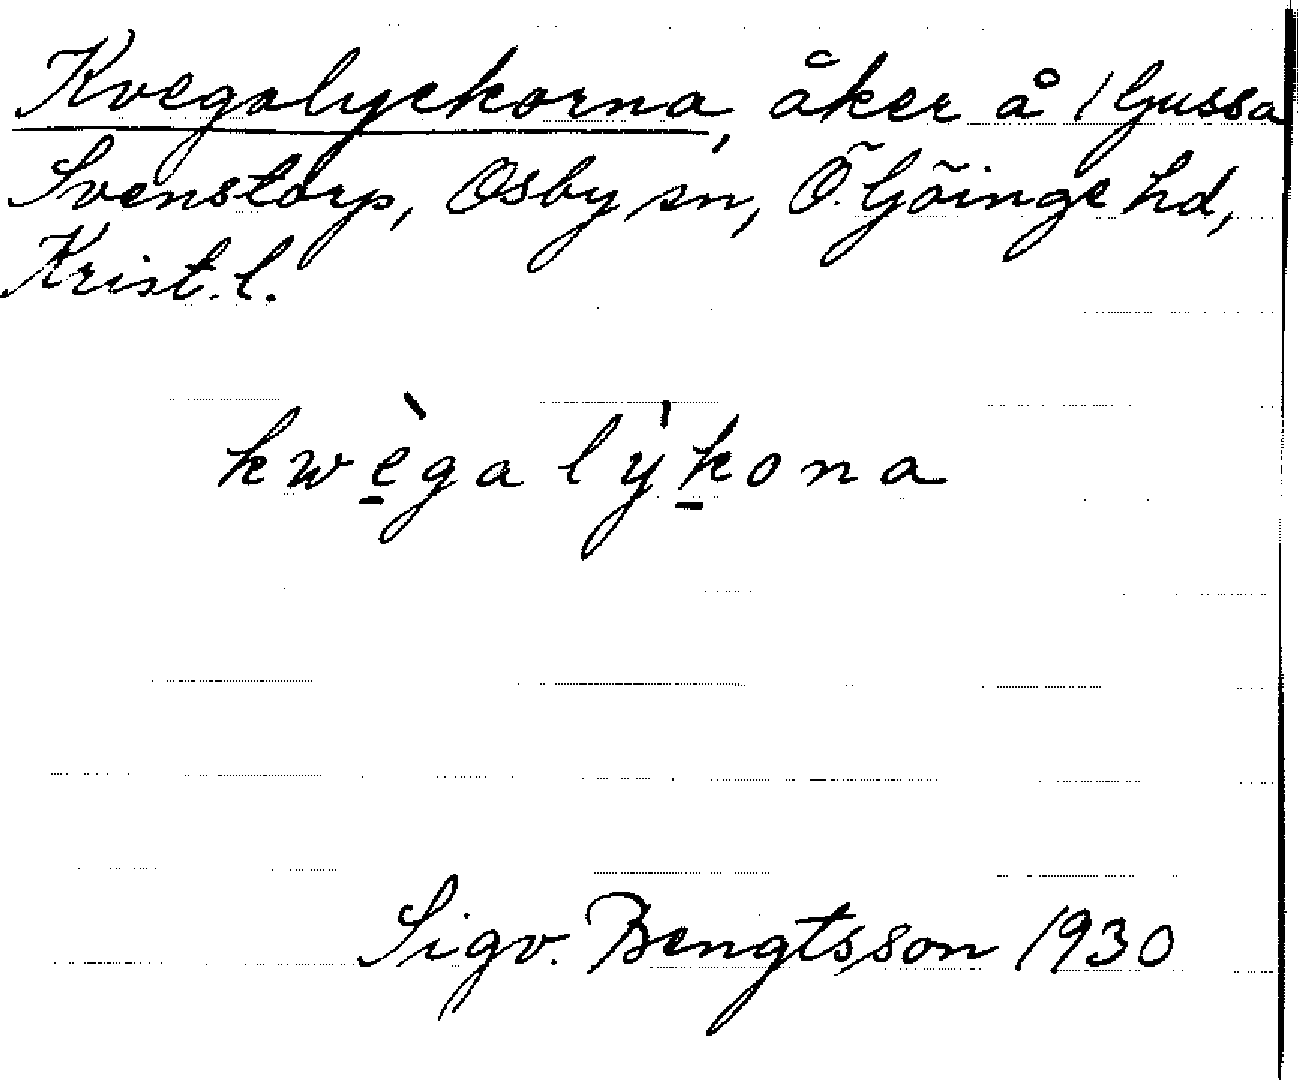 Kvegalyckorna, åker å 1 Gussa
Svenstorp, Osby sn, Ö. Göinge hd,
Krist. l.
kwègalỳkona
Sigv. Bengtsson 1930